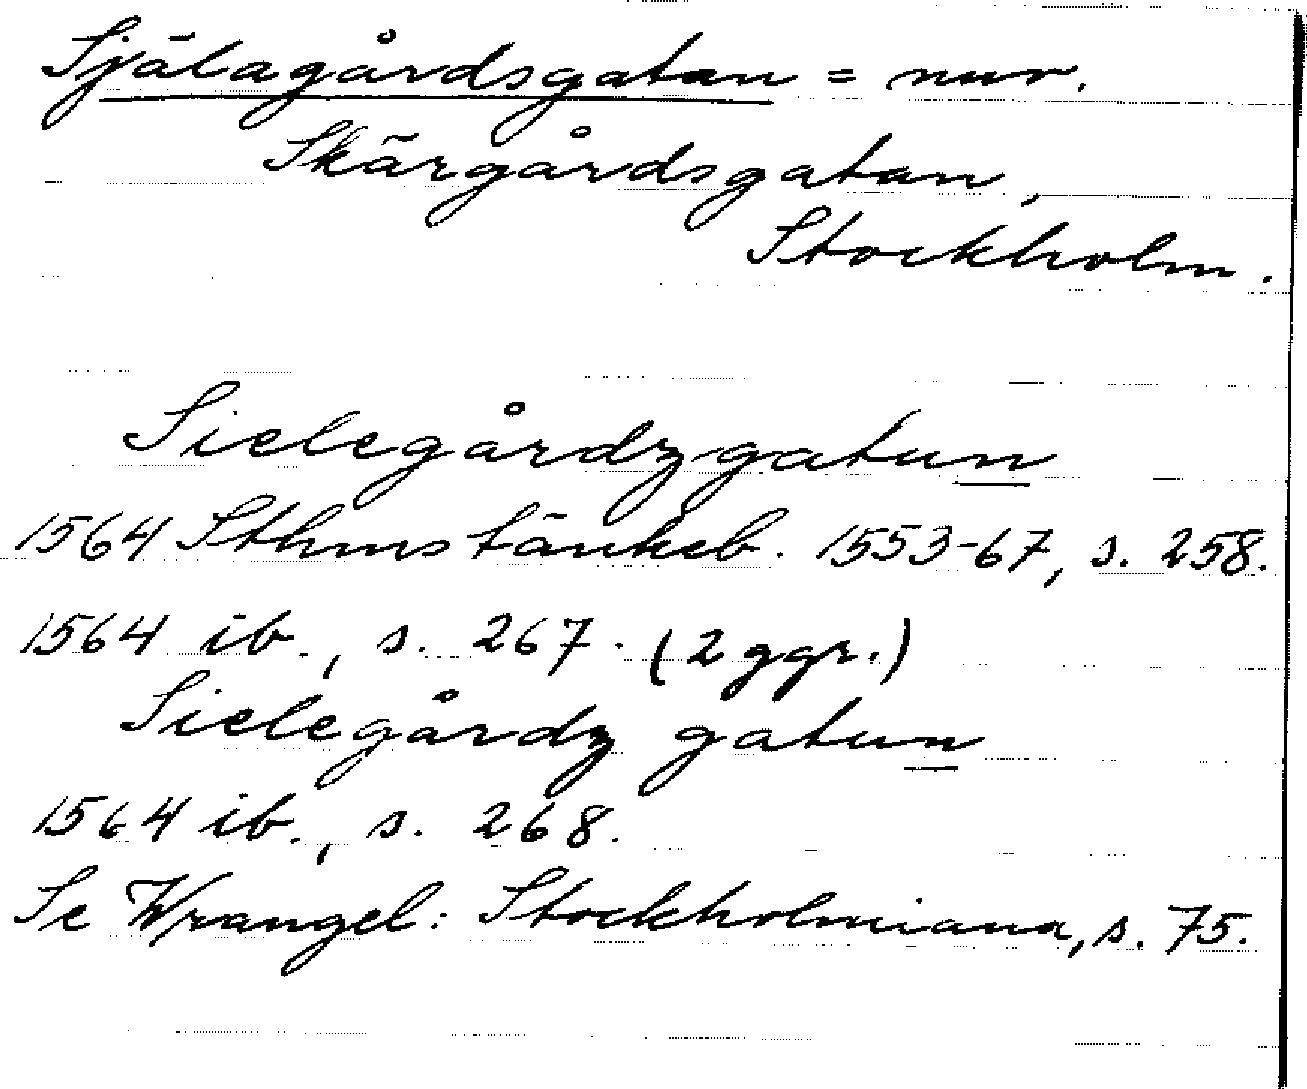 Själagårdsgatan = nuv.
Skärgårdsgatan,
Stockholm.
Sielegårdzgatun
1564 Sthms tänkeb. 1553-67, s. 258.
1564 ib., s. 267. (2 ggr.)
Sielegårdz gatun
1564 ib., s. 268.
Se Wrangel: Stockholmiana, s. 75.